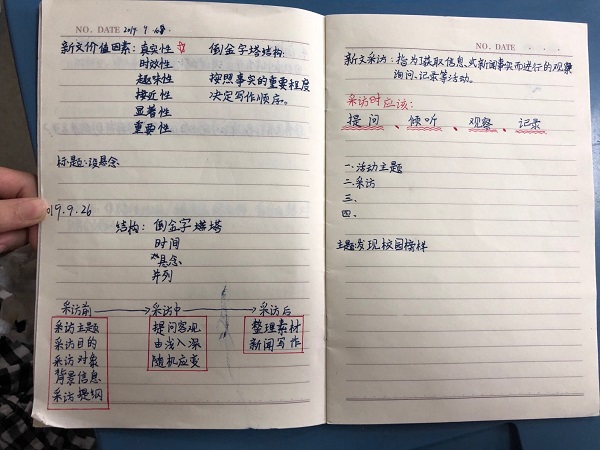 NO. DATE 2019. 9.
新文价值因素:真实性 倒金字塔结构.
时效性
趣味性 按照事实的重要程度
接近性 决定写作顺序。
显著性
重要性
标题:设悬念
019.9.26
结构:倒金字塔塔
时间
悬念
并列
采访前 采访中 采访后
采访主题 提问客观 整理素材
采访目的 由浅入深 新闻写作
采访对象 随机应变
背景信息
采访提纲
NO. DATE
新文采访:指为了获取信息或新闻事实而进行的观察
询问、记录等活动。
采访时应该:
提问、倾听、观察、记录
一.活动主题
二.采访
三.
四.
主题发现校园榜样